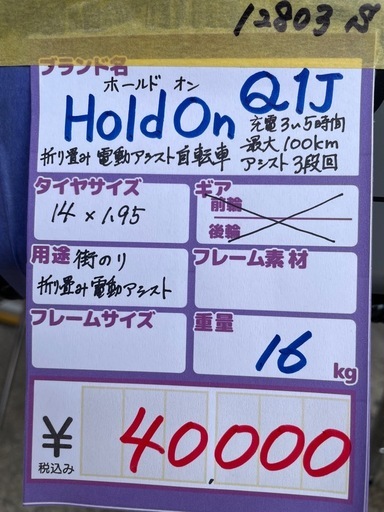 12803 S
ブランド名
ホールド オン
Hold On Q1J
充電3〜5時間
最大100km
アシスト3段回
折り畳み電動アシスト自転車
タイヤサイズ
14×1.95
ギア
前輪
後輪
用途 街のり
折り畳み電動アシスト
フレーム素材
フレームサイズ
重量
16
kg
¥ 40,000
税込み